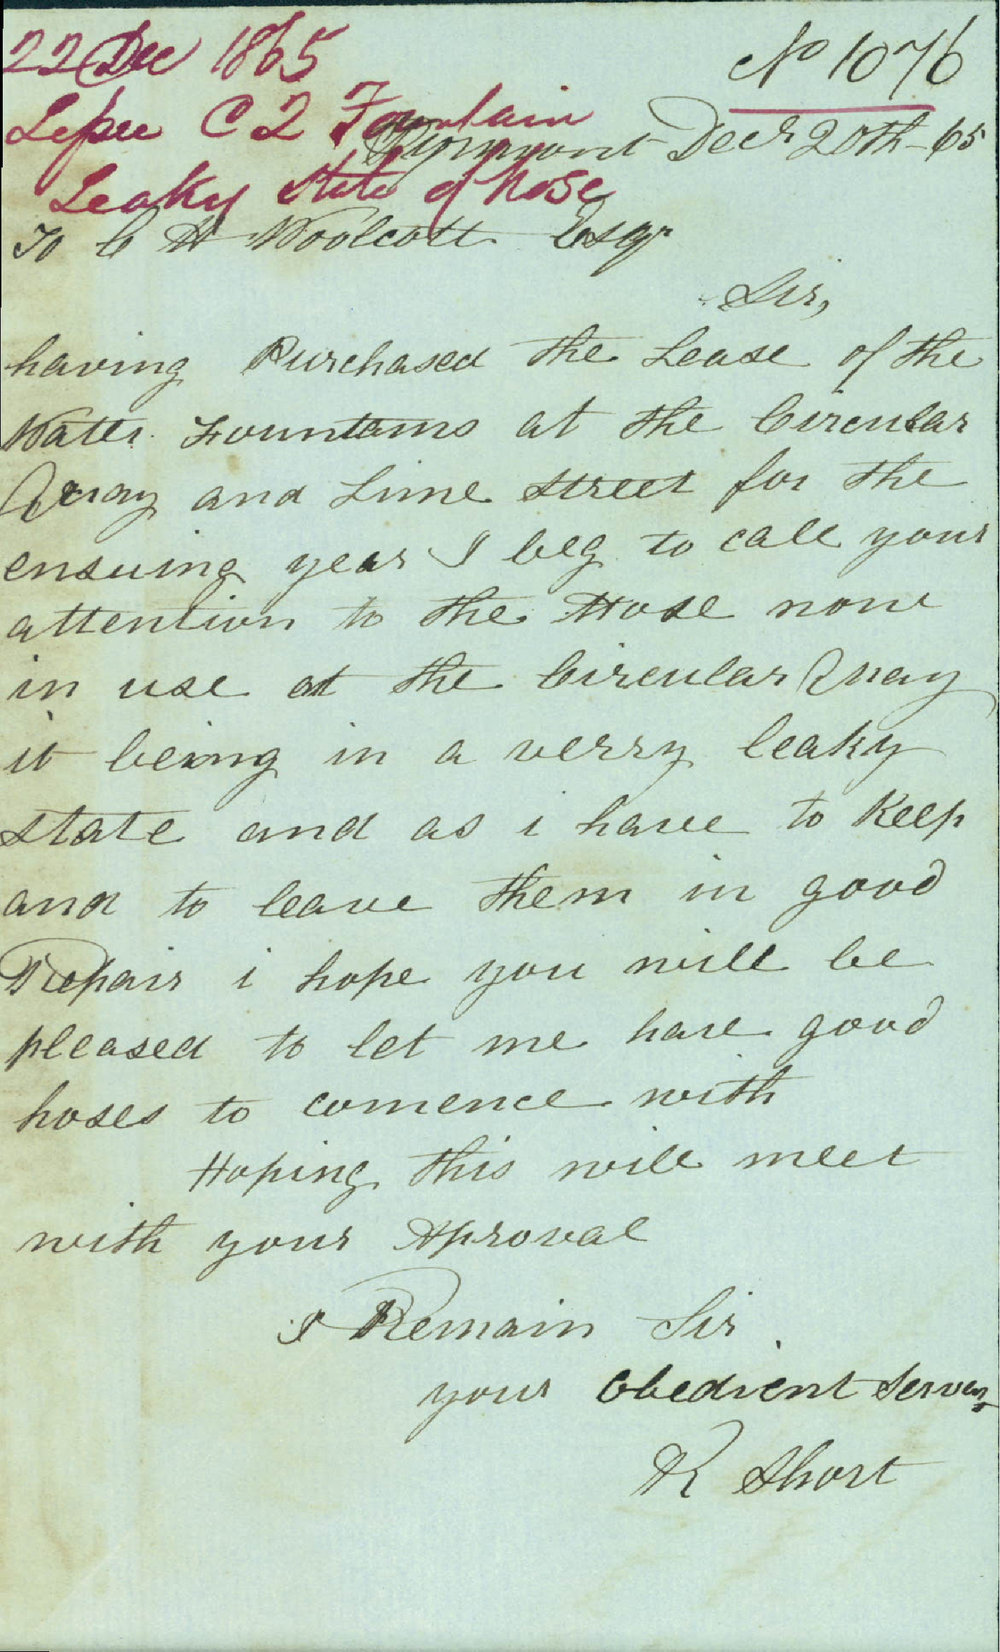 22 Dec 1865
No 1076
C Q Fountain
Leaky state of hose
Pyrmont Decr 20th -65
To C H Woolcott Esqr
Sir,
having Purchased the Lease of the
Water Fountains at the Circular
Quay and Lime Street for the
ensuing year I beg to call your
attention to the Hose now
in use at the Circular Quay
it being in a verry leaky
state and as i have to Keep
and to leave them in good
Repair i hope you will be
pleased to let me have good
hoses to comence with
Hoping this will meet
with your Aproval
I Remain Sir
your Obedient Servan
R Short